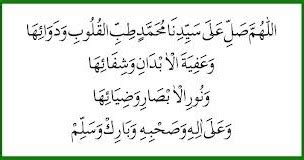 اَللّٰهُمَّ صَلِّ عَلَى سَيِّدِنَا مُحَمَّدٍ طِبِّ الْقُلُوبِ وَدَوَائِهَا
وَعَافِيَةِ الْاَبْدَانِ وَشِفَائِهَا
وَنُورِ الْاَبْصَارِ وَضِيَائِهَا
وَعَلَى اٰلِهِ وَصَحْبِهِ وَبَارِكْ وَسَلِّمْ